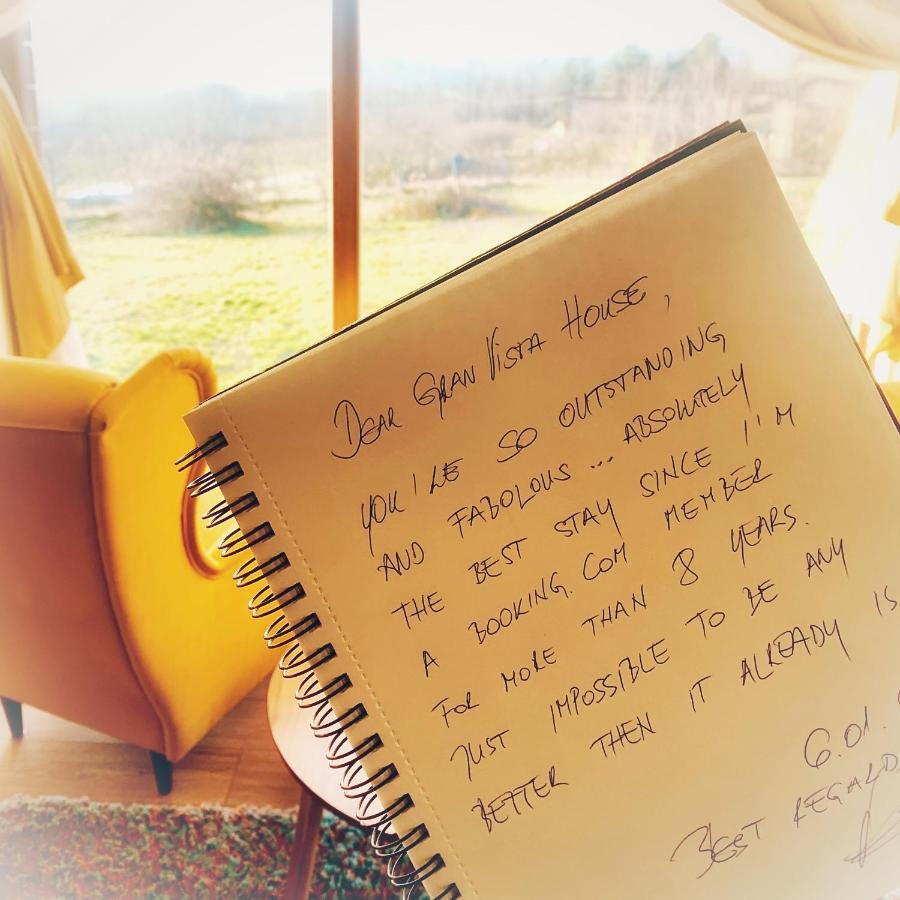 DEAR GRAN VISTA HOUSE,
YOU'RE SO OUTSTANDING
AND FABOLOUS ... ABSOLUTELY
THE BEST STAY SINCE I'M
A BOOKING.COM MEMBER
FOR MORE THAN 8 YEARS.
JUST IMPOSSIBLE TO BE ANY
BETTER THEN IT ALREADY IS
6.01.
BEST REGARD